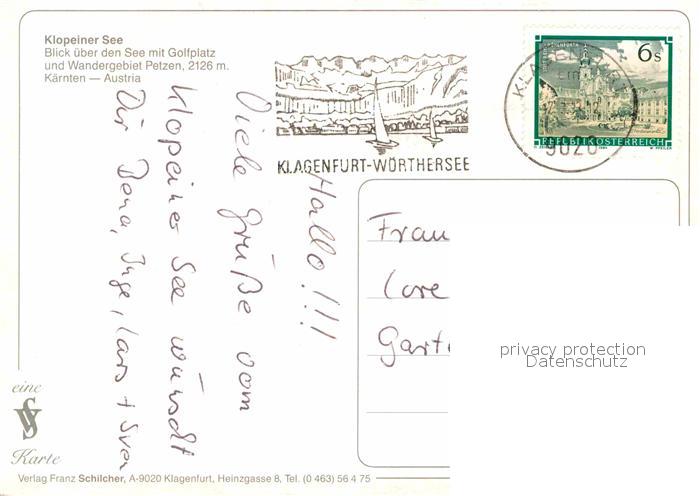 Klopeiner See
Blick über den See mit Golfplatz
und Wandergebiet Petzen, 2126 m.
Kärnten — Austria
KLAGENFURT-WÖRTHERSEE
6 s
REPUBLIK ÖSTERREICH
9020
Hallo!!!
Viele Grüße vom
Klopeiner See wünscht
Dir Dena, Inge, Lars + Sven
Frau
Lore
Gart
privacy protection
Datenschutz
eine
Karte
Verlag Franz Schilcher, A-9020 Klagenfurt, Heinzgasse 8, Tel. (0 463) 56 4 75